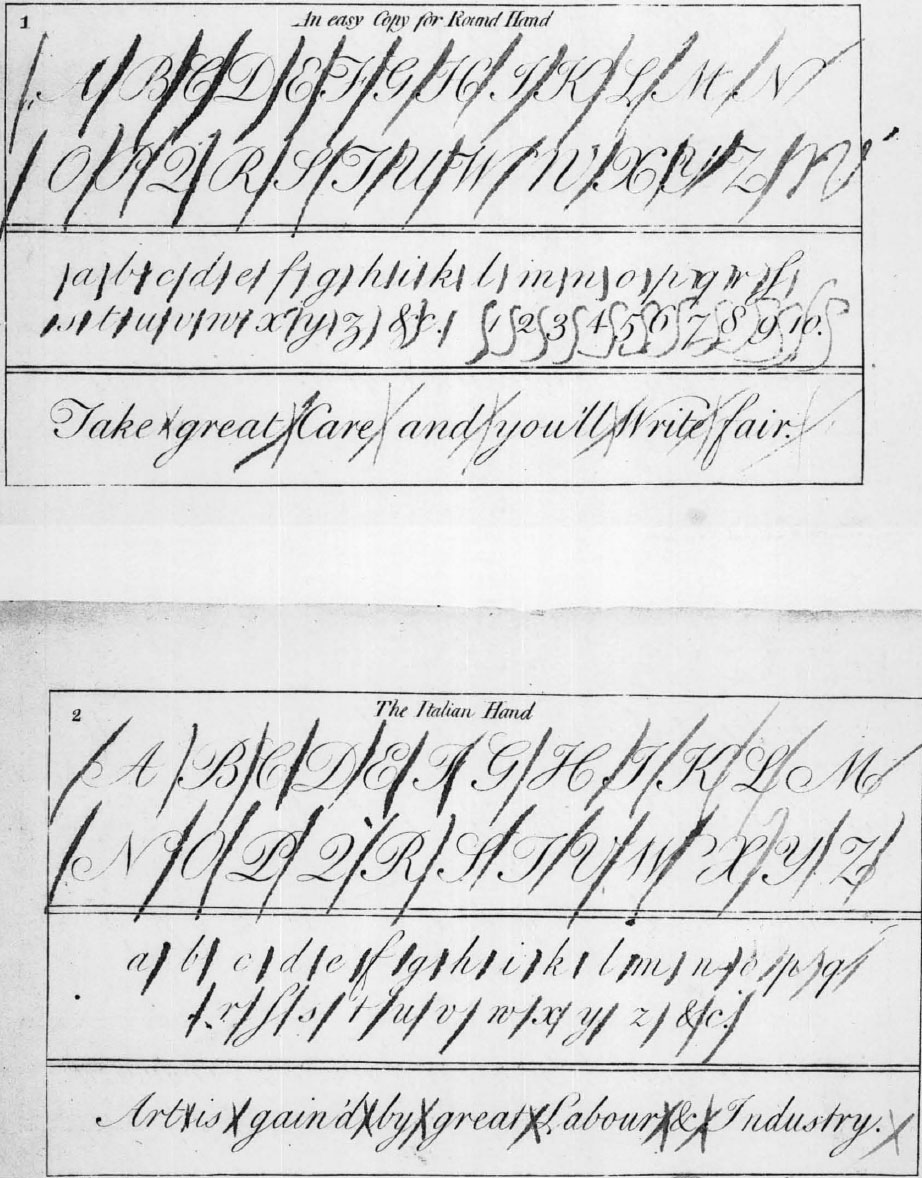 1
An easy Copy for Round Hand
A B C D E F G H I K L M N
O P Q R S T U W W X Y Z
a b c d e f g h i k l m n o p q r ſ
s t u v w x y z &c. 1 2 3 4 5 6 7 8 9 10.
Take great Care and you'll Write fair.
2
The Italian Hand
A B C D E F G H I K L M
N O P Q R S T U W X Y Z
a b c d e f g h i k l m n o p q
r ſ s t u v w x y z &c.
Art is gain'd by great Labour & Industry.